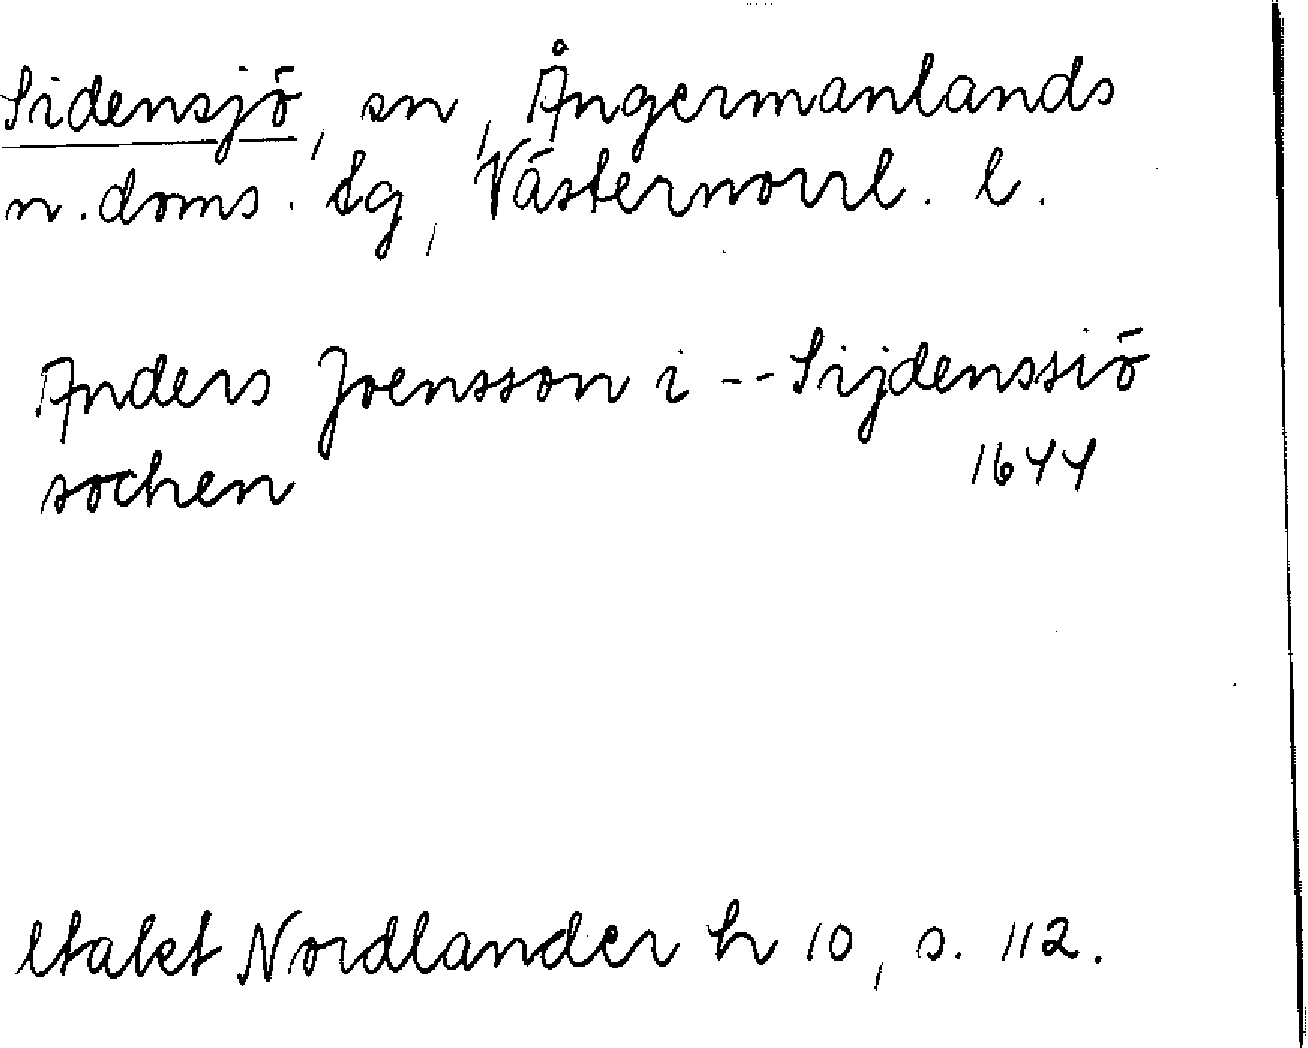 Sidensjö, sn, Ångermanlands
n. doms. sg, Västernorrl. l.
Anders Joensson i -- Sijdenssiö
1644
sochen
Utakt Nordlander h 10, s. 112.